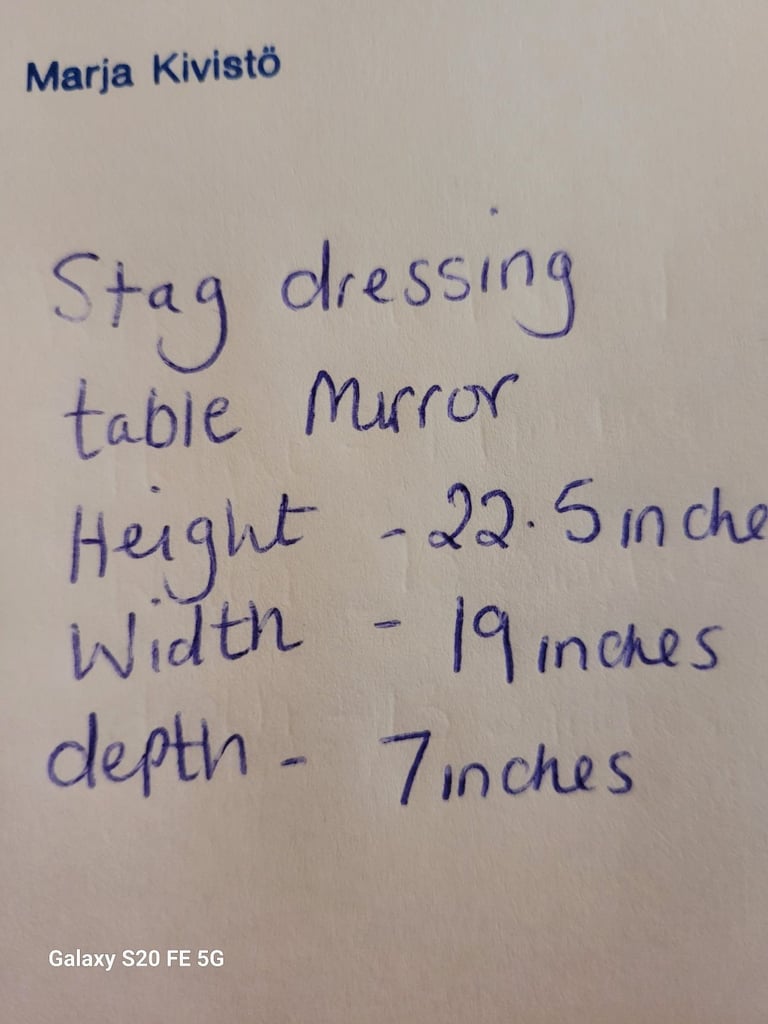 Marja Kivistö
Stag dressing
table Mirror
Height - 22.5 inche
Width - 19 inches
depth - 7 inches
Galaxy S20 FE 5G